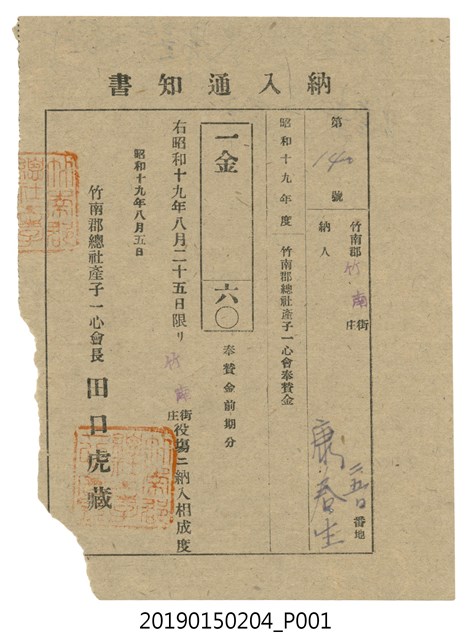 納入通知書
第 140 號
竹南郡 竹南 街庄
番地
納人 康春生
昭和十九年度 竹南郡總社產子一心會奉賛金
一金 六〇
奉賛金前期分
右昭和十九年八月二十五日限リ 竹南 街庄役場ニ納入相成度
昭和十九年八月五日
竹南郡總社產子一心會長 田口虎藏
20190150204_P001